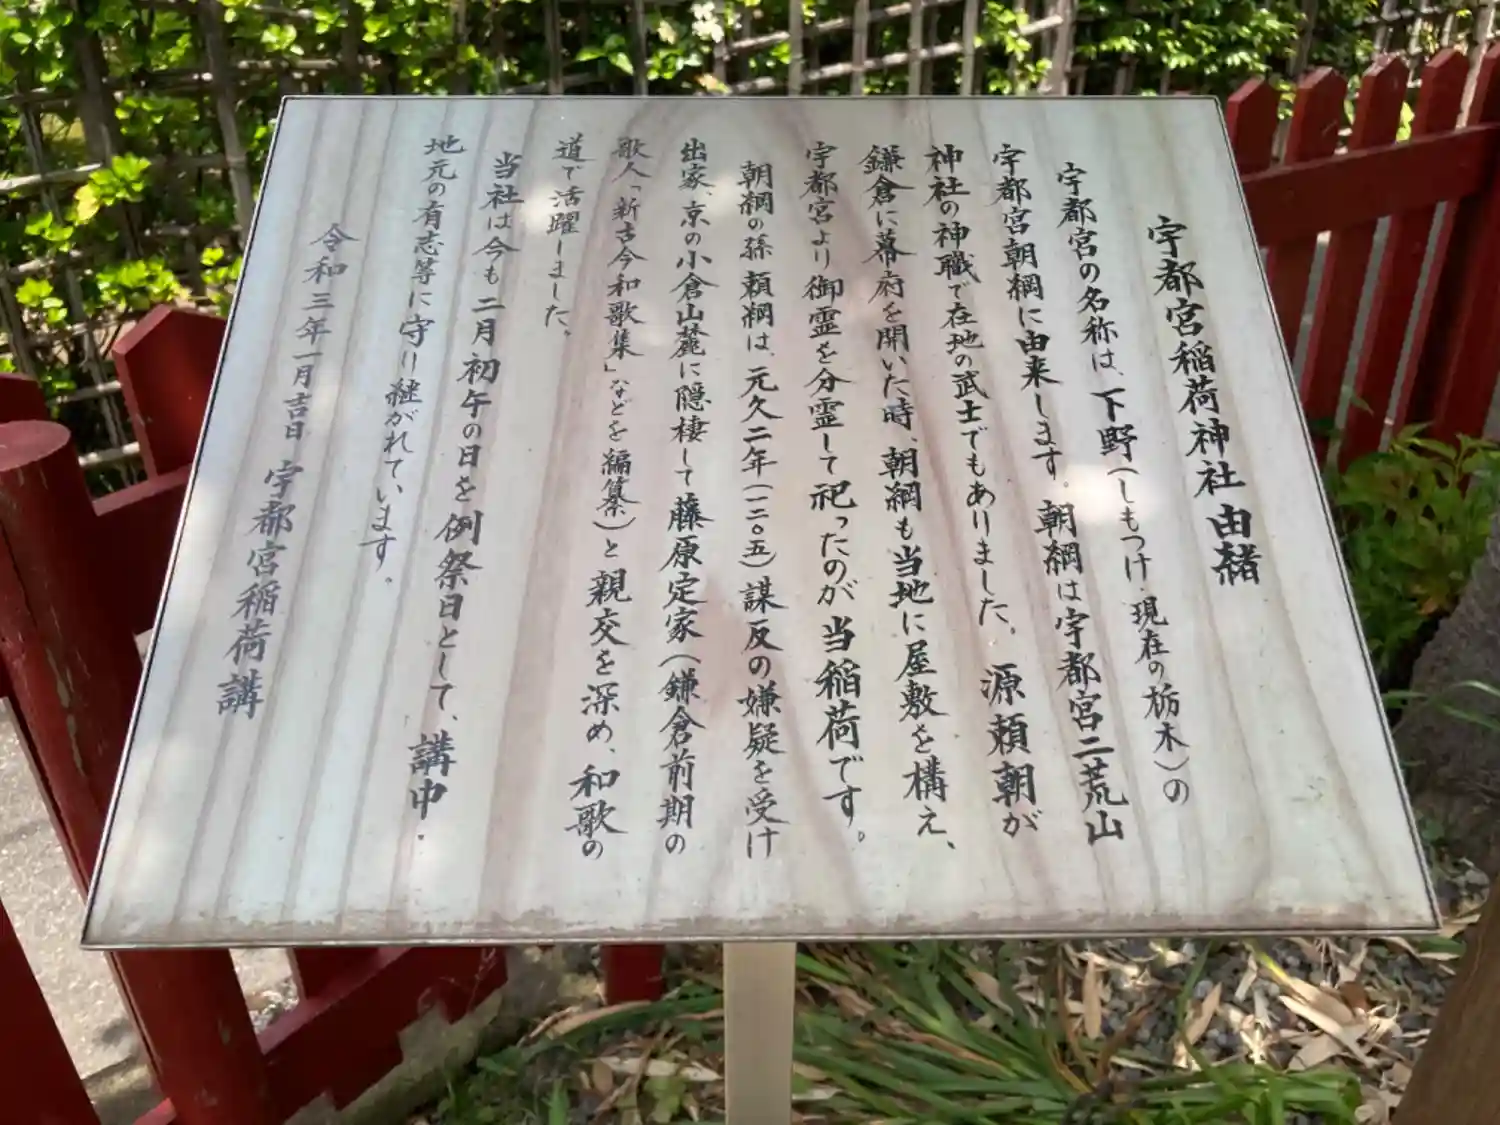 宇都宮稲荷神社由緒
宇都宮の名称は、下野（しもつけ・現在の栃木）の
宇都宮朝綱に由来します。朝綱は宇都宮二荒山
神社の神職で在地の武士でもありました。源頼朝が
鎌倉に幕府を開いた時、朝綱も当地に屋敷を構え、
宇都宮より御霊を分霊して祀ったのが当稲荷です。
朝綱の孫頼綱は、元久二年（一二〇五）謀反の嫌疑を受け
出家、京の小倉山麓に隠棲して藤原定家（鎌倉前期の
歌人「新古今和歌集」などを編纂）と親交を深め、和歌の
道で活躍しました。
当社は今も二月初午の日を例祭日として、講中・
地元の有志等に守り継がれています。
令和三年一月吉日 宇都宮稲荷講